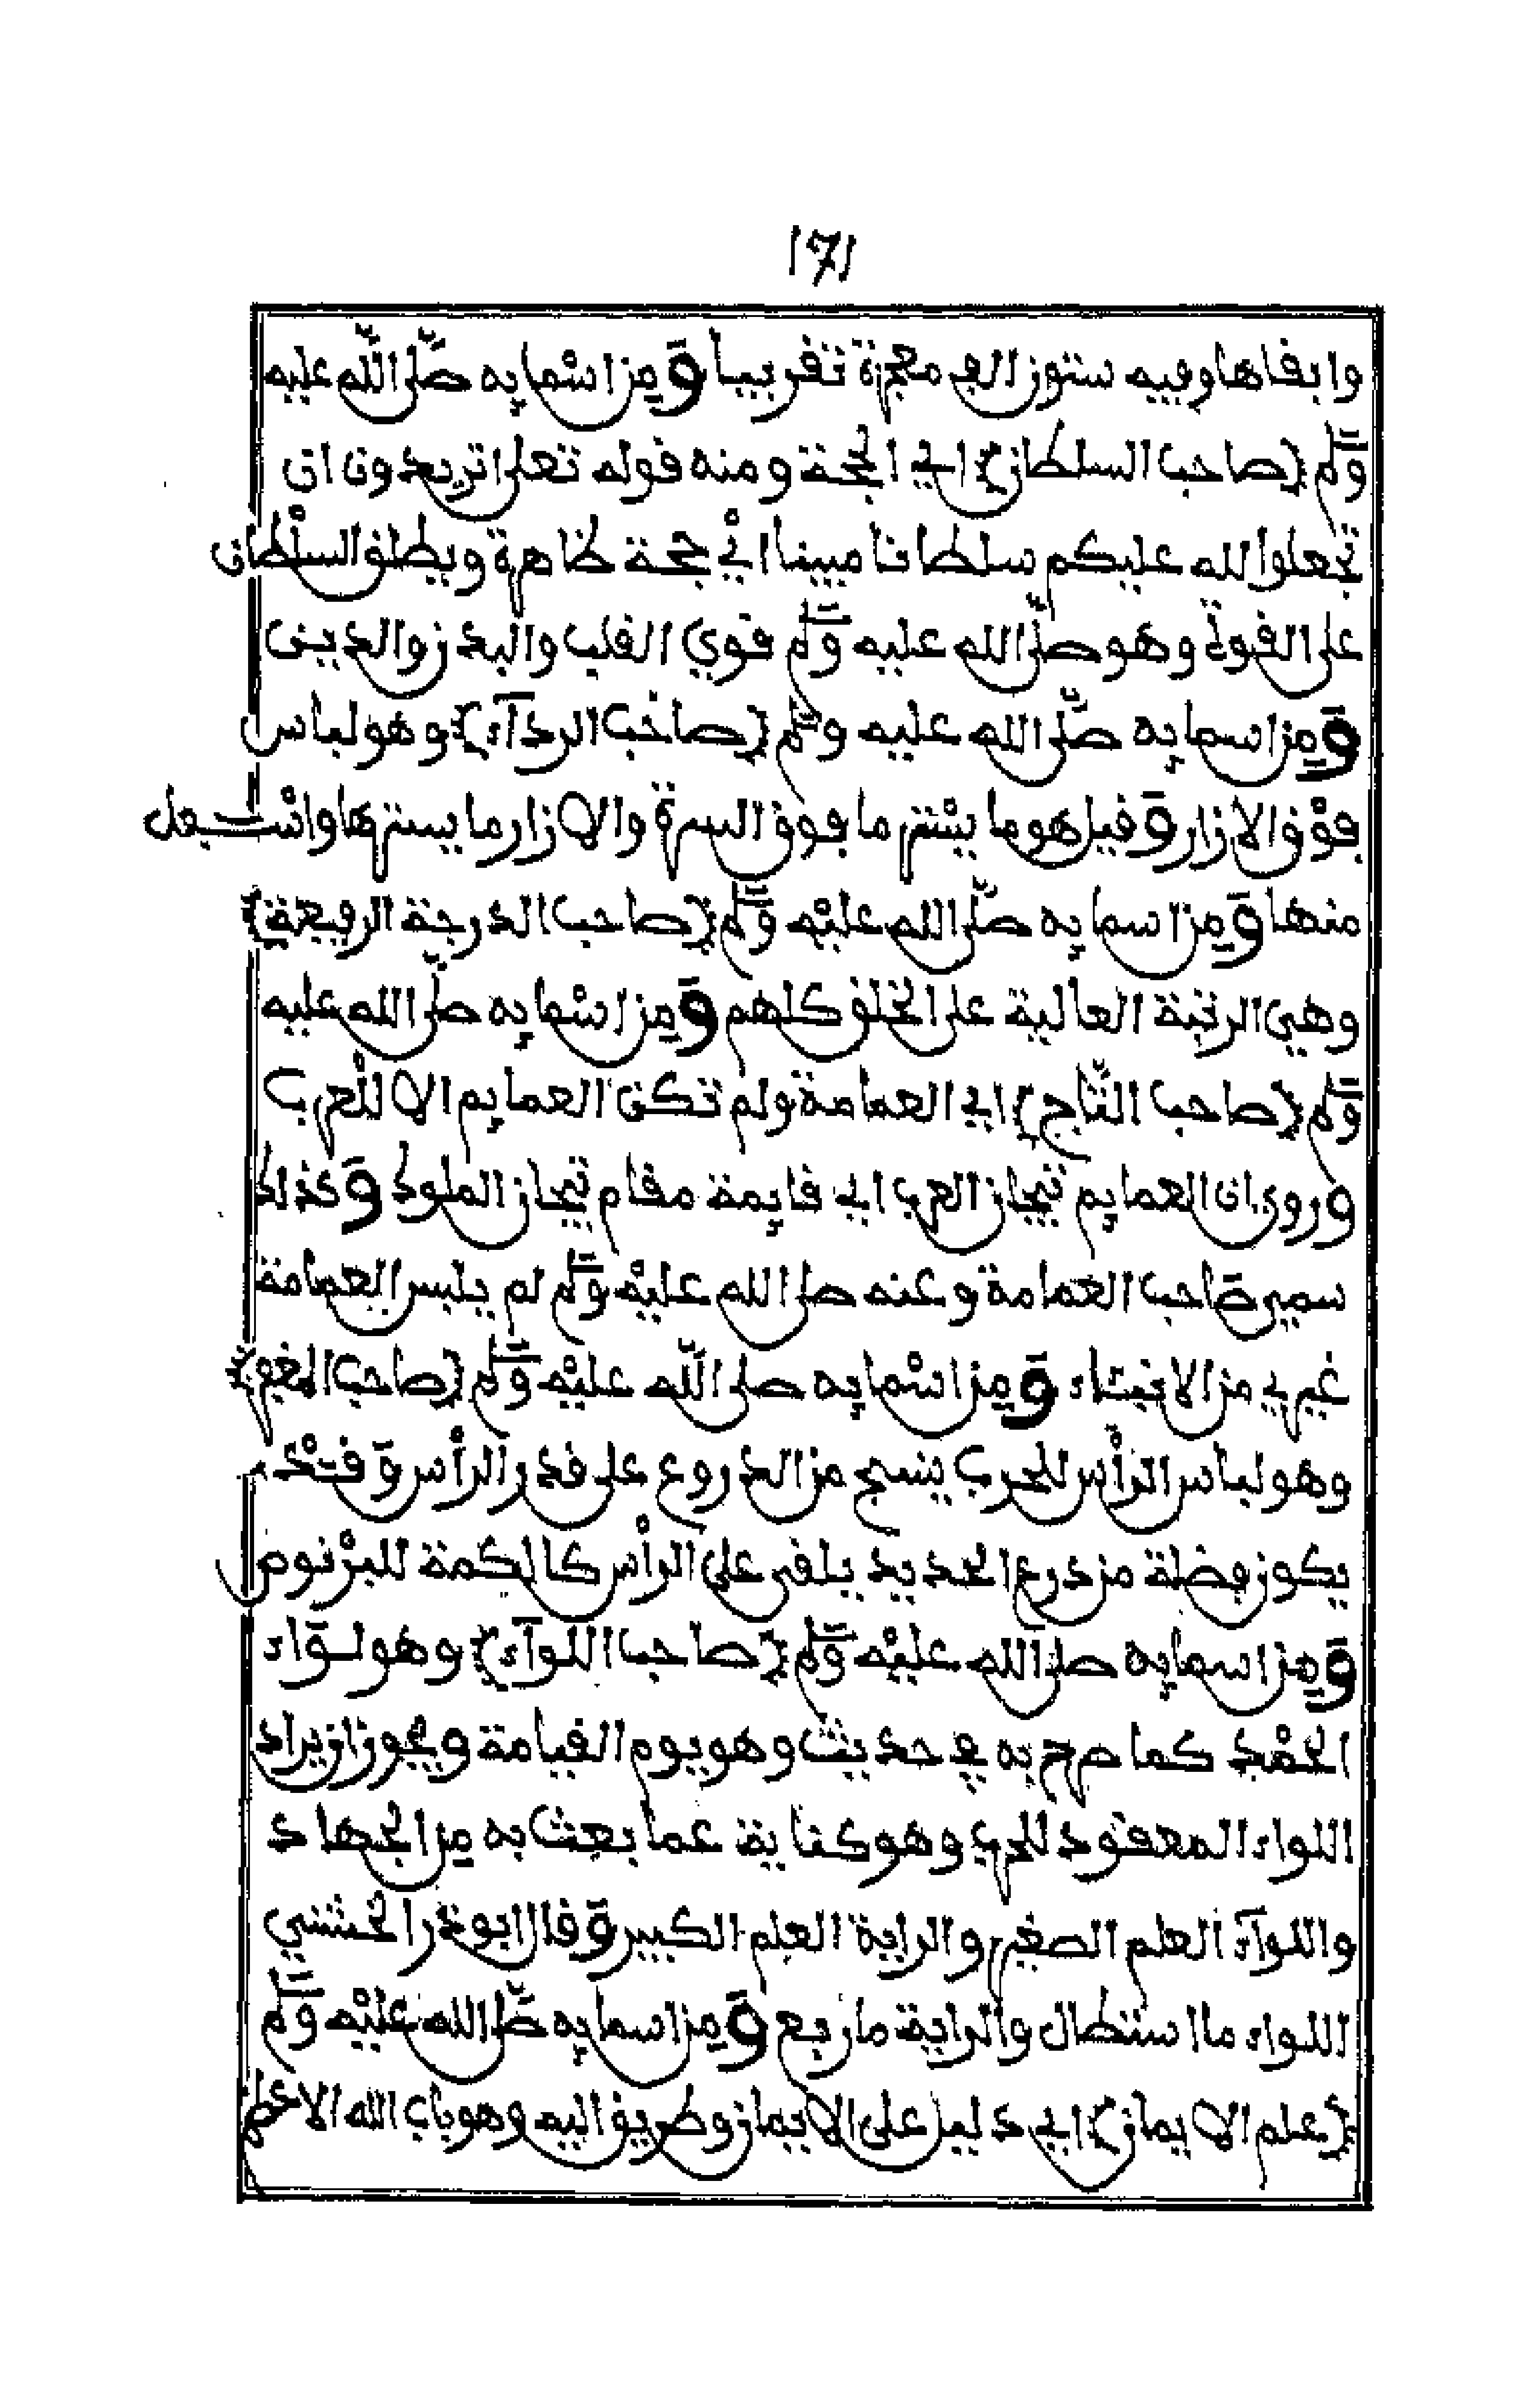 171
وابقاها وفيه ستون الف معجزة تقريبا ومن اسمايه صلى الله عليه
وسلم {صاحب السلطان} اي الحجة ومنه قوله تعلى اتريدون ان
تجعلوا لله عليكم سلطانا مبينا اي حجة ظاهرة ويطلق السلطان
على القوة وهو صلى الله عليه وسلم قوي القلب والبدن والدين
ومن اسمايه صلى الله عليه وسلم {صاحب الرداء} وهو لباس
فوق الازار وقيل هو ما يستر ما فوق السرة والازار ما يسترها واسفل
منها ومن اسمايه صلى الله عليه وسلم {صاحب الدرجة الرفيعة}
وهي الرتبة العالية على الخلق كلهم ومن اسمايه صلى الله عليه
وسلم {صاحب التاج} اي العمامة ولم تكن العمايم الا للعرب
وروي ان العمايم تيجان العرب اي قايمة مقام تيجان الملوك وكذلك
سمي صاحب العمامة وعنه صلى الله عليه وسلم لم يلبس العمامة
غيري من الانبياء ومن اسمايه صلى الله عليه وسلم {صاحب المغفر}
وهو لباس الرأس للحرب ينسج من الدروع على قدر الرأس وقد
يكون فضلة من درع الحديد يلقى على الرأس كالكمة للبرنوص
ومن اسمايه صلى الله عليه وسلم {صاحب اللواء} وهو لواء
الحمد كما صرح به في حديث وهو يوم القيامة ويجوز ان يراد
اللواء المعقود للحرب وهو كناية عما بعث به من الجهاد
واللواء العلم الصغير والراية العلم الكبير وقال ابو ذر الخشني
اللواء ما استطال والراية ما ربع ومن اسمايه صلى الله عليه وسلم
{علم الايمان} اي دليل على الايمان وطريق اليه وهو باب الله الاعظم